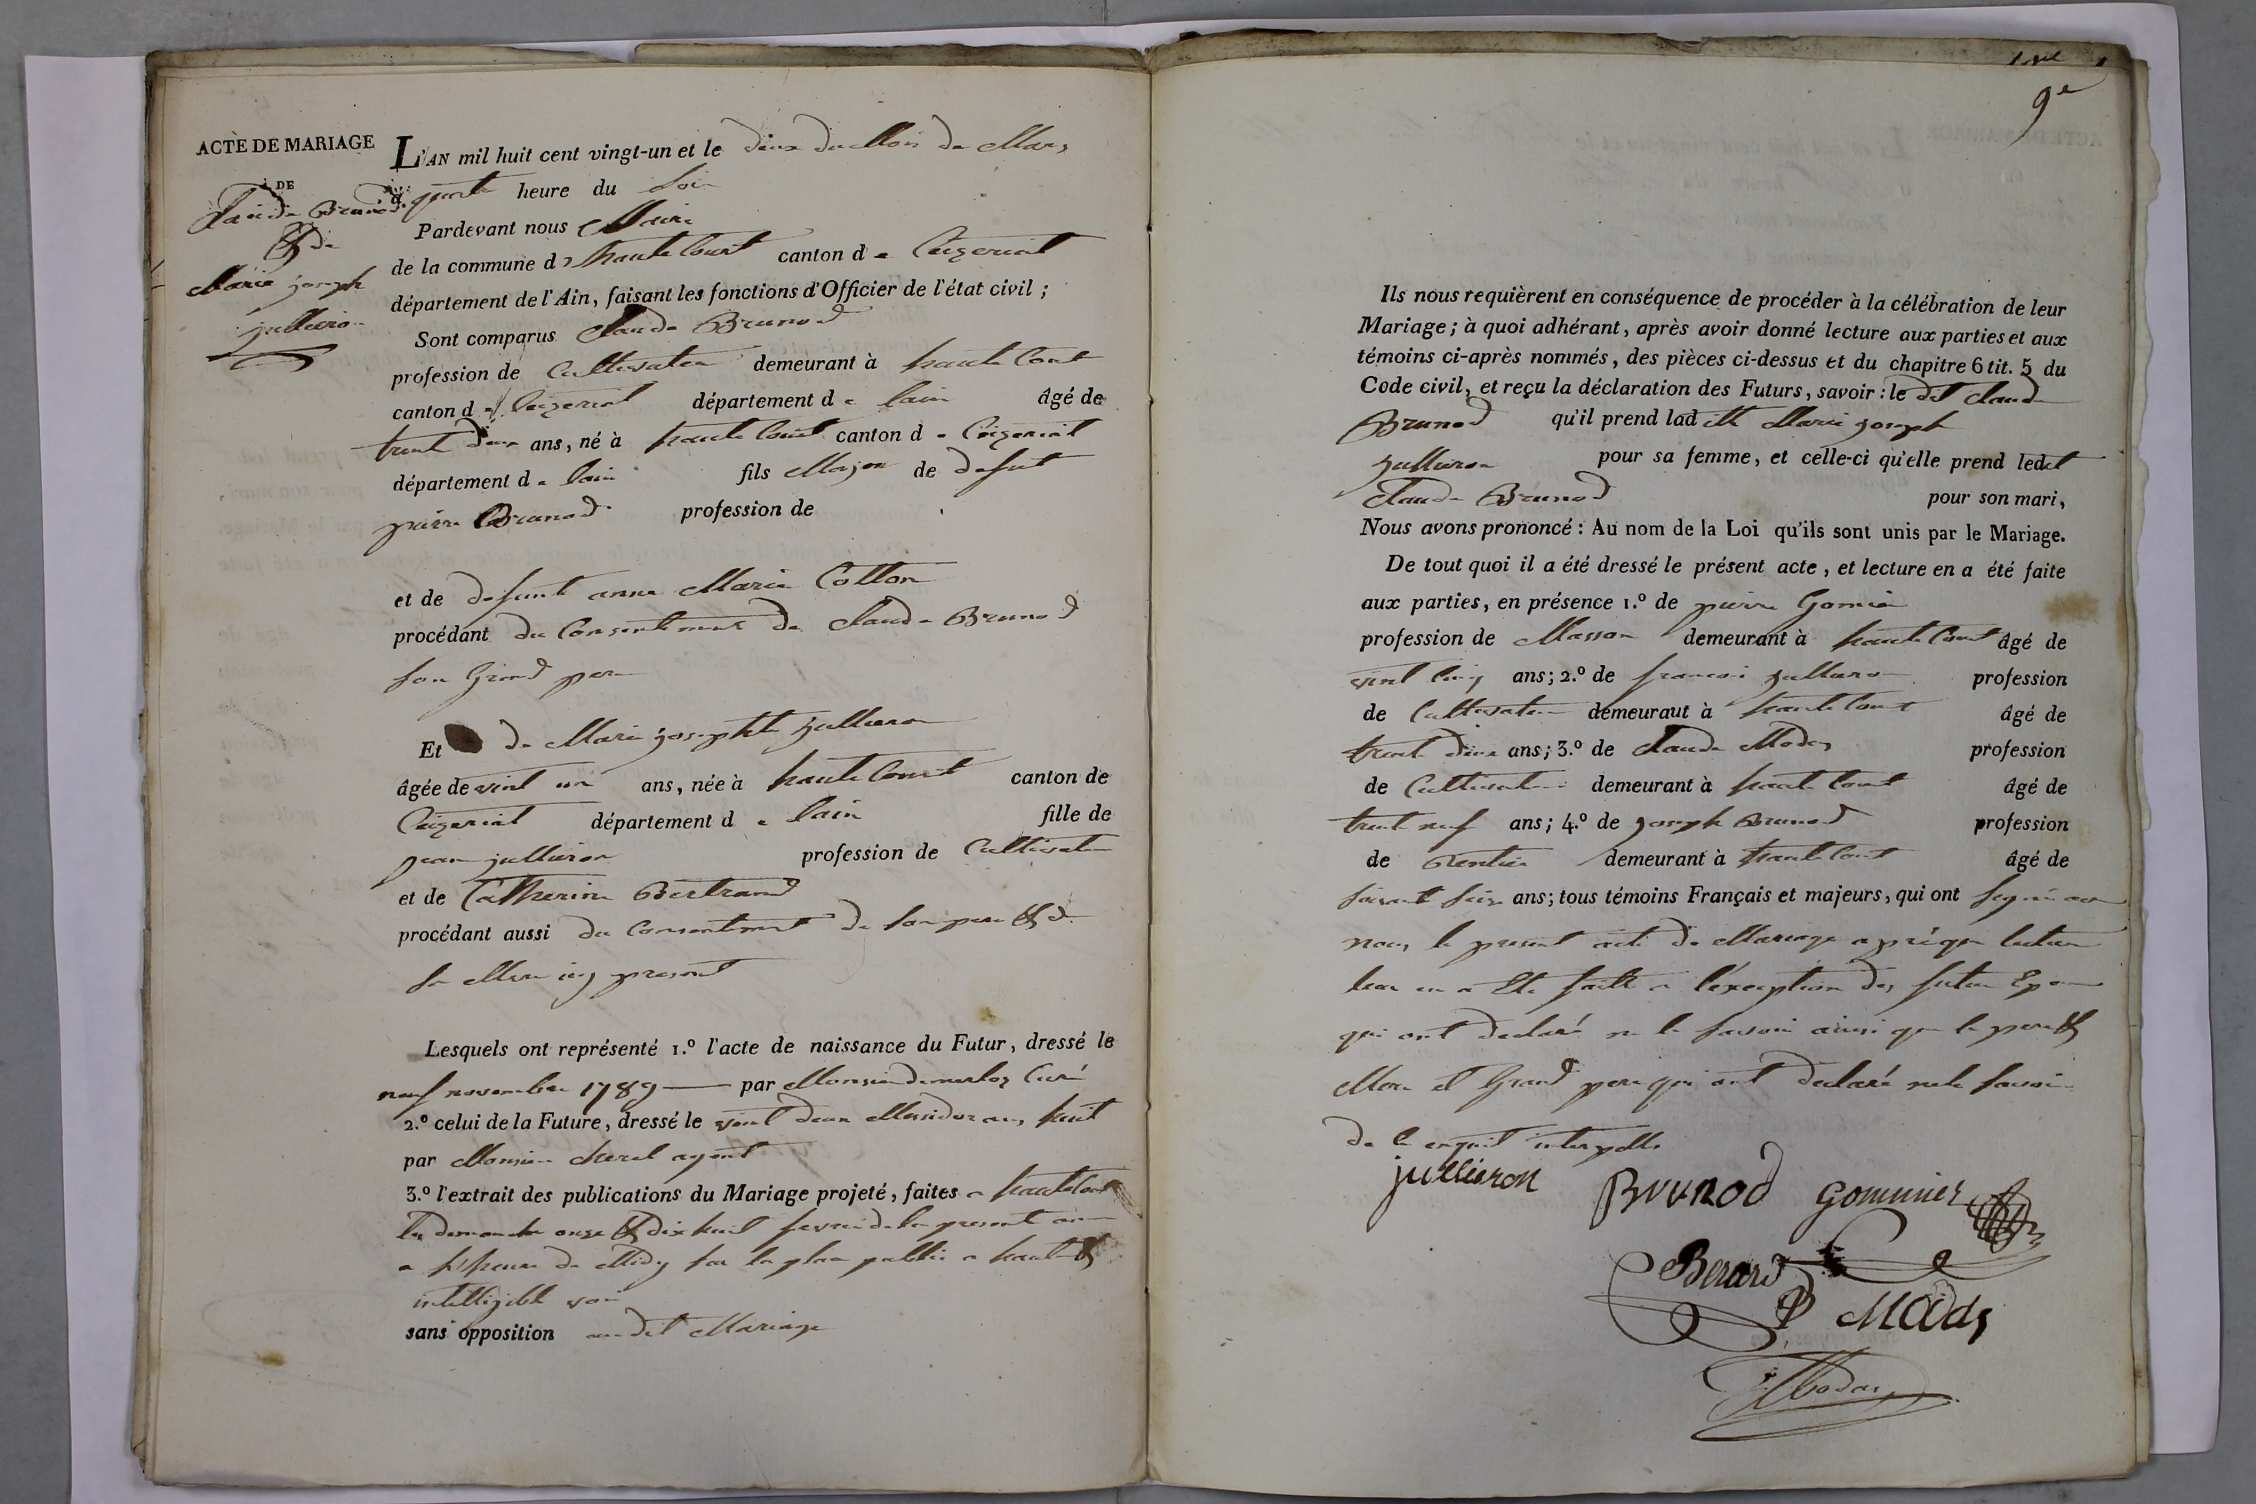 ACTE DE MARIAGE
DE
Claude Brunod
& de
Marie joseph
jullieron
L'AN mil huit cent vingt-un et le deux du Mois de Mars
à quatre heure du soir
Pardevant nous Maire
de la commune d haute Court canton d e Ceizeriat
département de l'Ain, faisant les fonctions d'Officier de l'état civil ;
Sont comparus Claude Brunod
profession de Cultivateur demeurant à haute Court
canton d e Ceizeriat département d e lain âgé de
trent deux ans, né à haute Court canton d e Ceizeriat
département d e lain fils Majeur de defunt
pierre Brunod profession de
et de defunt anne Marie Cotton
procédant du Consentement de Claude Brunod
son Grand pere
Et de Marie josephte jullieron
âgée de vint un ans, née à haute Court canton de
Ceizeriat département d e lain fille de
jean jullieron profession de Cultivateur
et de Catherine Bertrand
procédant aussi du Consentement de son pere & de
sa Mere icy present
Lesquels ont représenté 1.º l'acte de naissance du Futur, dressé le
neuf novembre 1789 par Monsieur Curé
2.º celui de la Future, dressé le vint deux Messidor an huit
par Monsieur agent
3.º l'extrait des publications du Mariage projeté, faites a haute Court
les demanche onze & dix huit fevrier de la present année
a heure de Midy sur la place public a haute &
intelligible voix
sans opposition au dit Mariage
9e
Ils nous requièrent en conséquence de procéder à la célébration de leur
Mariage ; à quoi adhérant, après avoir donné lecture aux parties et aux
témoins ci-après nommés, des pièces ci-dessus et du chapitre 6 tit. 5 du
Code civil, et reçu la déclaration des Futurs, savoir : le dit Claude
Brunod qu'il prend lad itte Marie joseph
jullieron pour sa femme, et celle-ci qu'elle prend ledit
Claude Brunod pour son mari,
Nous avons prononcé : Au nom de la Loi qu'ils sont unis par le Mariage.
De tout quoi il a été dressé le présent acte, et lecture en a été faite
aux parties, en présence 1.º de pierre Gomier
profession de Masson demeurant à haute Court âgé de
vint cinq ans ; 2.º de francois jullieron profession
de Cultivateur demeuraut à haute Court âgé de
trent deux ans ; 3.º de Claude Modas profession
de Cultivateur demeurant à haute Court âgé de
trent neuf ans ; 4.º de joseph Brunod profession
de Rentier demeurant à haute Court âgé de
soixant seize ans ; tous témoins Français et majeurs, qui ont signé avec
nous le present acte de Mariage apré que lecture
leur en a Eté faitte a l'exception des futur Epoux
qui ont declaré ne le savoir ainsi que le pere &
Mere et Grand pere qui ont declaré ne le savoir
de ce enquit interpellé
jullieron Brunod gommier
Berard
Modas